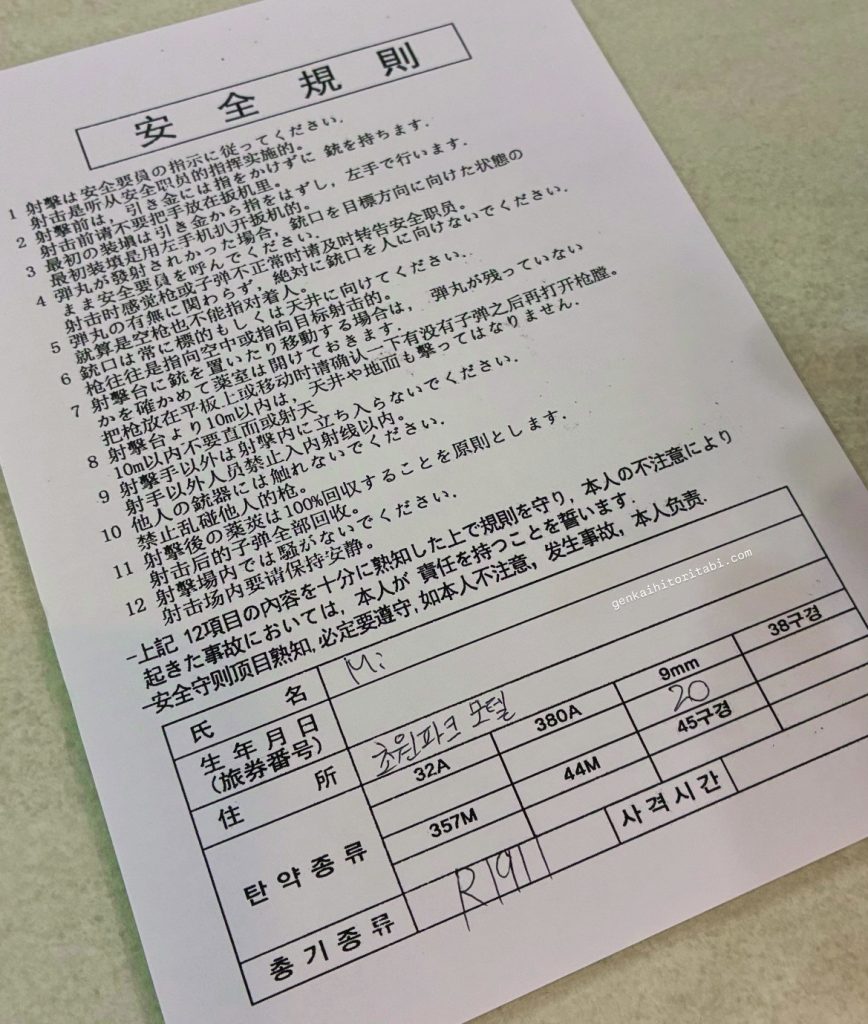 安全規則
1 射撃は安全要員の指示に従ってください.
射击是听从安全职员的指挥实施的。
2 射撃前は, 引き金には指をかけずに 銃を持ちます.
射击前请不要把手放在扳机里。
3 最初の装填は引き金から指をはずし, 左手で行います.
最初装填是用左手机扒开扳机的。
4 弾丸が發射されかった場合, 銃口を目標方向に向けた状態の
まま安全要員を呼んでください.
射击时感觉枪或子弹不正常时请及时转告安全职员。
5 弾丸の有無に関わらず, 絶対に銃口を人に向けないでください.
就算是空枪也不能指对着人。
6 銃口は常に標的もしくは天井に向けてください.
枪往往是指向空中或指向目标射击的。
7 射撃台に銃を置いたり移動する場合は, 弾丸が残っていない
かを確かめて薬室は開けておきます.
把枪放在平板上或移动时请确认一下有没有子弹之后再打开枪膛。
8 射撃台より10m以内は, 天井や地面も撃ってはなりません.
10m以内不要直面或射天
9 射撃手以外は射撃内に立ち入らないでください.
射手以外人员禁止入内射线以内。
10 他人の銃器には触れないでください.
禁止乱碰他人的枪。
11 射撃後の薬莢は100%回収することを原則とします.
射击后的子弹全部回收。
12 射撃場内では騒がないでください.
射击场内要请保持安静。
-上記 12項目の内容を十分に熟知した上で規則を守り, 本人の不注意により
起きた事故においては, 本人が 責任を持つことを誓います.
-安全守则顶目熟知, 必定要遵守, 如本人不注意, 发生事故, 本人负责.
genkaihitoritabi.com
氏名 Mi
生年月日
(旅券番号)
住所 초원파크 모텔
탄약종류 32A 380A 9mm 38구경
20
357M 44M 45구경
총기종류 사격시간